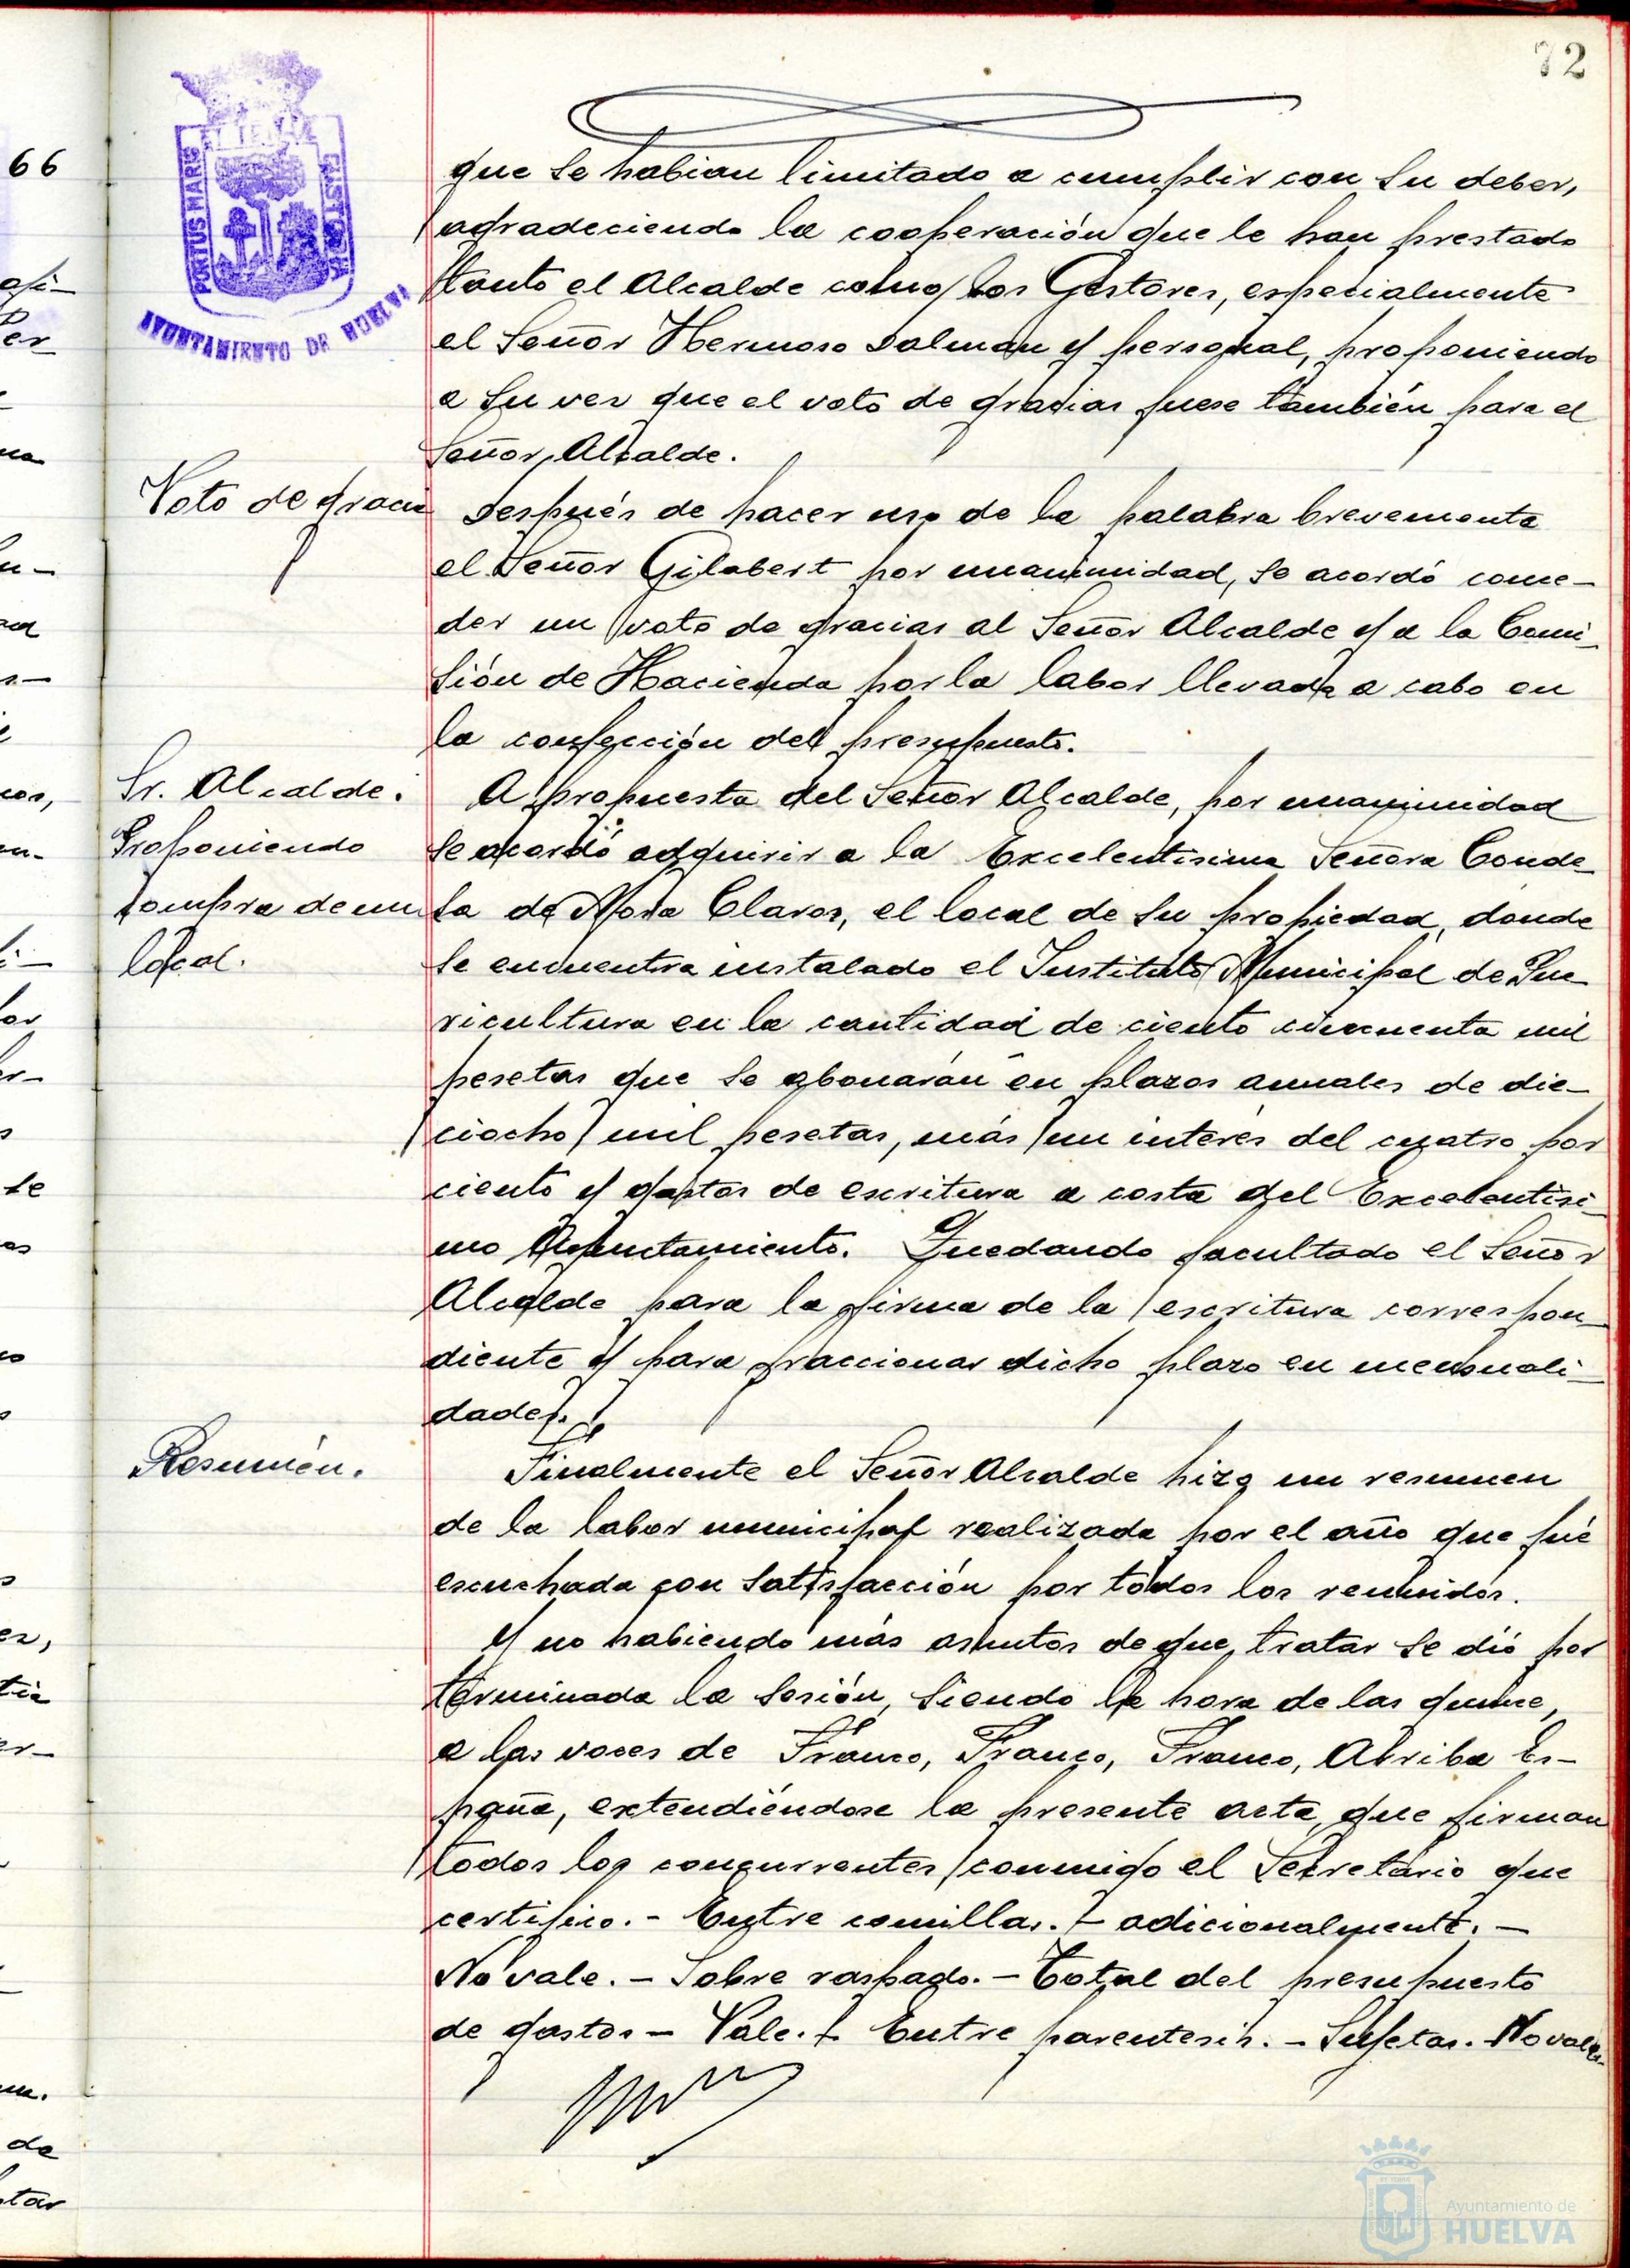 72
66
PORTUS MARIS
CUSTODIA
AYUNTAMIENTO DE HUELVA
que se habian limitado a cumplir con su deber,
agradeciendo la cooperación que le han prestado
tanto el Alcalde como los Gestores, especialmente
el Señor Hermoso Dalman y personal, proponiendo
a su vez que el voto de gracias fuese también para el
Señor Alcalde.
Voto de gracia
Después de hacer uso de la palabra brevemente
el Señor Gilabert por unanimidad, se acordó conce-
der un voto de gracias al Señor Alcalde y a la Comi-
sión de Hacienda por la labor llevada a cabo en
la confección del presupuesto.
Sr. Alcalde.
Proponiendo
compra de un
local.
A propuesta del Señor Alcalde, por unanimidad
se acordó adquirir a la Excelentisima Señora Conde-
sa de Mora Claros, el local de su propiedad, donde
se encuentra instalado el Instituto Municipal de Pue-
ricultura en la cantidad de ciento cincuenta mil
pesetas que se abonarán en plazos anuales de die-
ciocho mil pesetas, más un interés del cuatro por
ciento y gastos de escritura a costa del Excelentisi-
mo Ayuntamiento. Quedando facultado el Señor
Alcalde para la firma de la escritura correspon-
diente y para fraccionar dicho plazo en mensuali-
dades.
Resumén.
Finalmente el Señor Alcalde hizo un resumen
de la labor municipal realizada por el año que fué
escuchada con satisfacción por todos los reunidos.
Y no habiendo más asuntos de que tratar se dió por
terminada la sesión, siendo la hora de las quince,
a las voces de Franco, Franco, Franco, Arriba Es-
paña, extendiéndose la presente acta, que firman
todos los concurrentes conmigo el Secretario que
certifico. - Entre comillas. - adicionalmente. -
No vale. - Sobre raspado. - Total del presupuesto
de gastos - Vale. - Entre parentesis. - Sujetas. No vale.
Ayuntamiento de
HUELVA